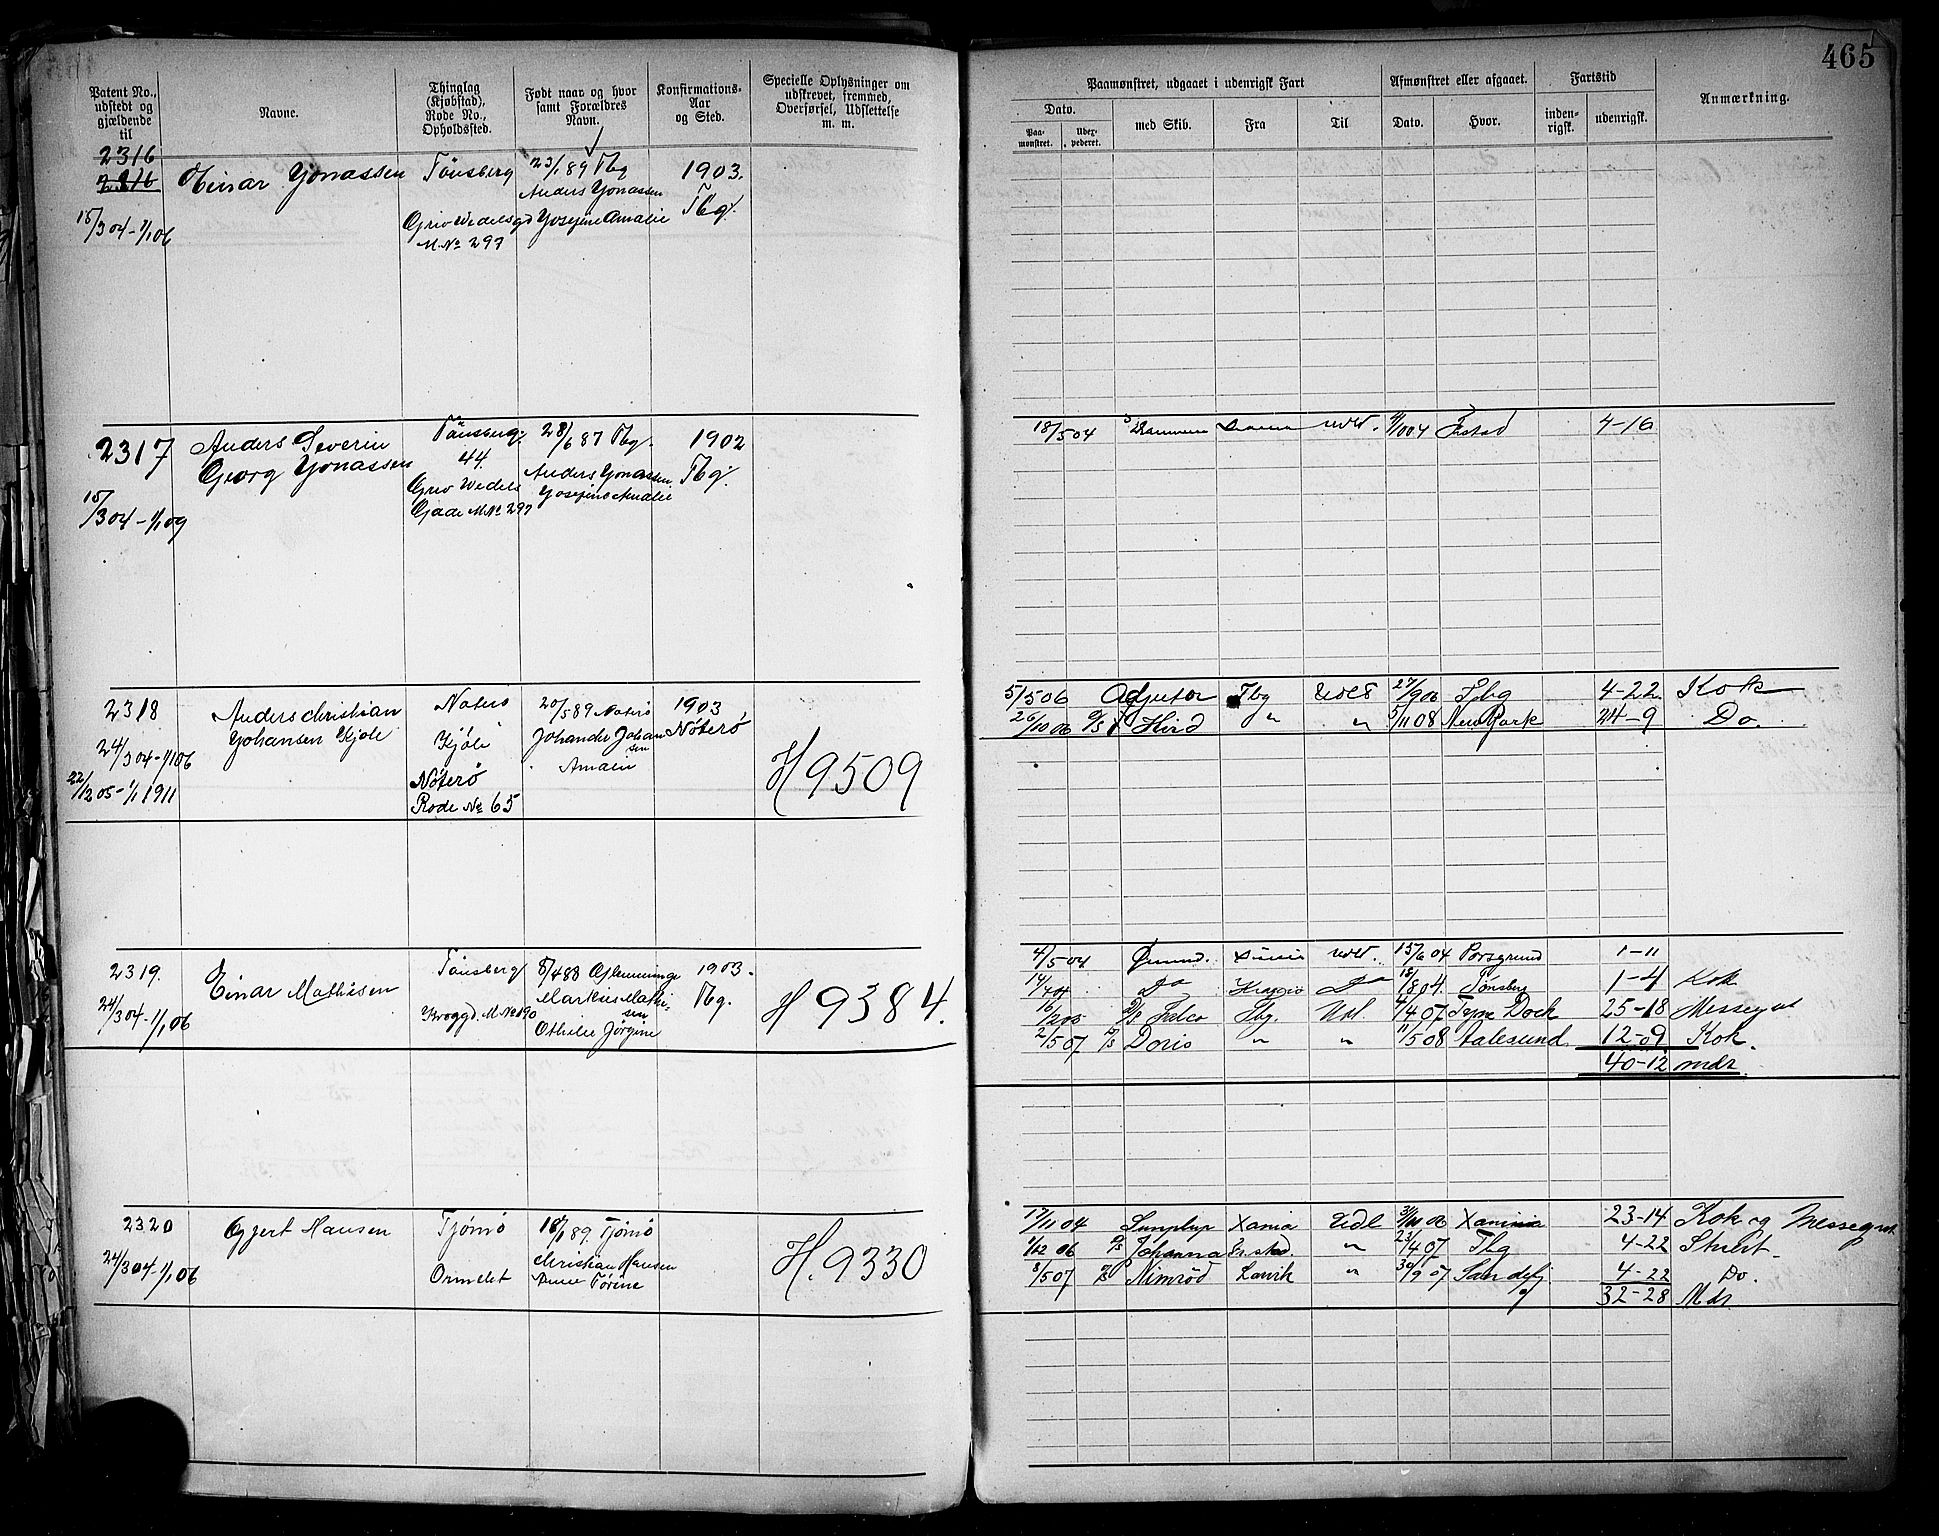 465
Patent No., udstedt og gjældende til
Navne.
Thinglag (Kjøbstad), Rode No., Opholdssted.
Født naar og hvor samt Forældres Navn.
Konfirmations-Aar og Sted.
Specielle Oplysninger om udskrevet, fremmed, Overførsel, Udslettelse m. m.
Paamønstret, udgaaet i udenrigsk Fart
Afmønstret eller afgaaet.
Fartstid
Anmærkning.
Dato.
Paa-mønstret.
Uder-pederet.
med Skib.
Fra
Til
Dato.
Hvor.
inden-rigsk.
udenrigsk.
2316
2316
15/3 04 - 1/1 06
Einar Yonassen
Tönsberg
Grev Wedelsgd
M. No 297
23/1 89 Tbg
Anders Yonassen
Yosefine Amalie
1903.
Tbg.
2317
15/3 04 - 1/1 09
Anders Severin
Georg Yonassen
Tönsberg
44.
Grev Wedels
Gade M. No 297
28/6 87 Tbg.
Anders Yonassen
Yosefine Amalie
1902
Tbg.
18/5 04
udld.
4-16
2318
24/3 04 - 1/1 06
22/12 05 - 1/1 1911
Anders Christian
Yohansen Kjöle
Nøterø
Kjöle
Nøterø
Rode No 65
20/5 89 Nøterø
Johan
sen
1903
Nøterø
H 9509
5/5 06 Adjutor Tbg Udld 27/9 06 Tbg 4-22 Kok
26/10 06 D/S Hird " " 5/11 08 New York 24-9 Do.
2319.
24/3 04 - 1/1 06
Einar Mathisen
Tönsberg
M No 190
8/4 88
Othilie Jørgine
1903.
Tbg.
H 9384.
4/5 04 udld. 15/6 04 Porsgrund 1-11
14/7 04 Do Kragerø Do 18/8 04. Tønsberg 1-4 Kok
D/S Falco Tbg. Udl. 4/4 07 Tyne Dock 25-18 Messegut
2/5 07 D/S Doris " " 11/5 08 Aalesund 12-09 Kok.
40-12 mdr.
2320
24/3 04 - 1/1 06
Eggert Hansen
Tjömö
Ormelet
89. Tjömö
Christian Hansen
1903
H. 9330
17/11 04 Sunplup Xania Udl 06 Xania 23-14 Kok og Messegut
1/12 06 D/S Johanna Fr.stad. " 23/4 07 Tbg 4-22 Stuert.
8/5 07 D/S Nimrød Larvik " 30/9 07 Sandefj 4-22 Do.
32-28 Mdr